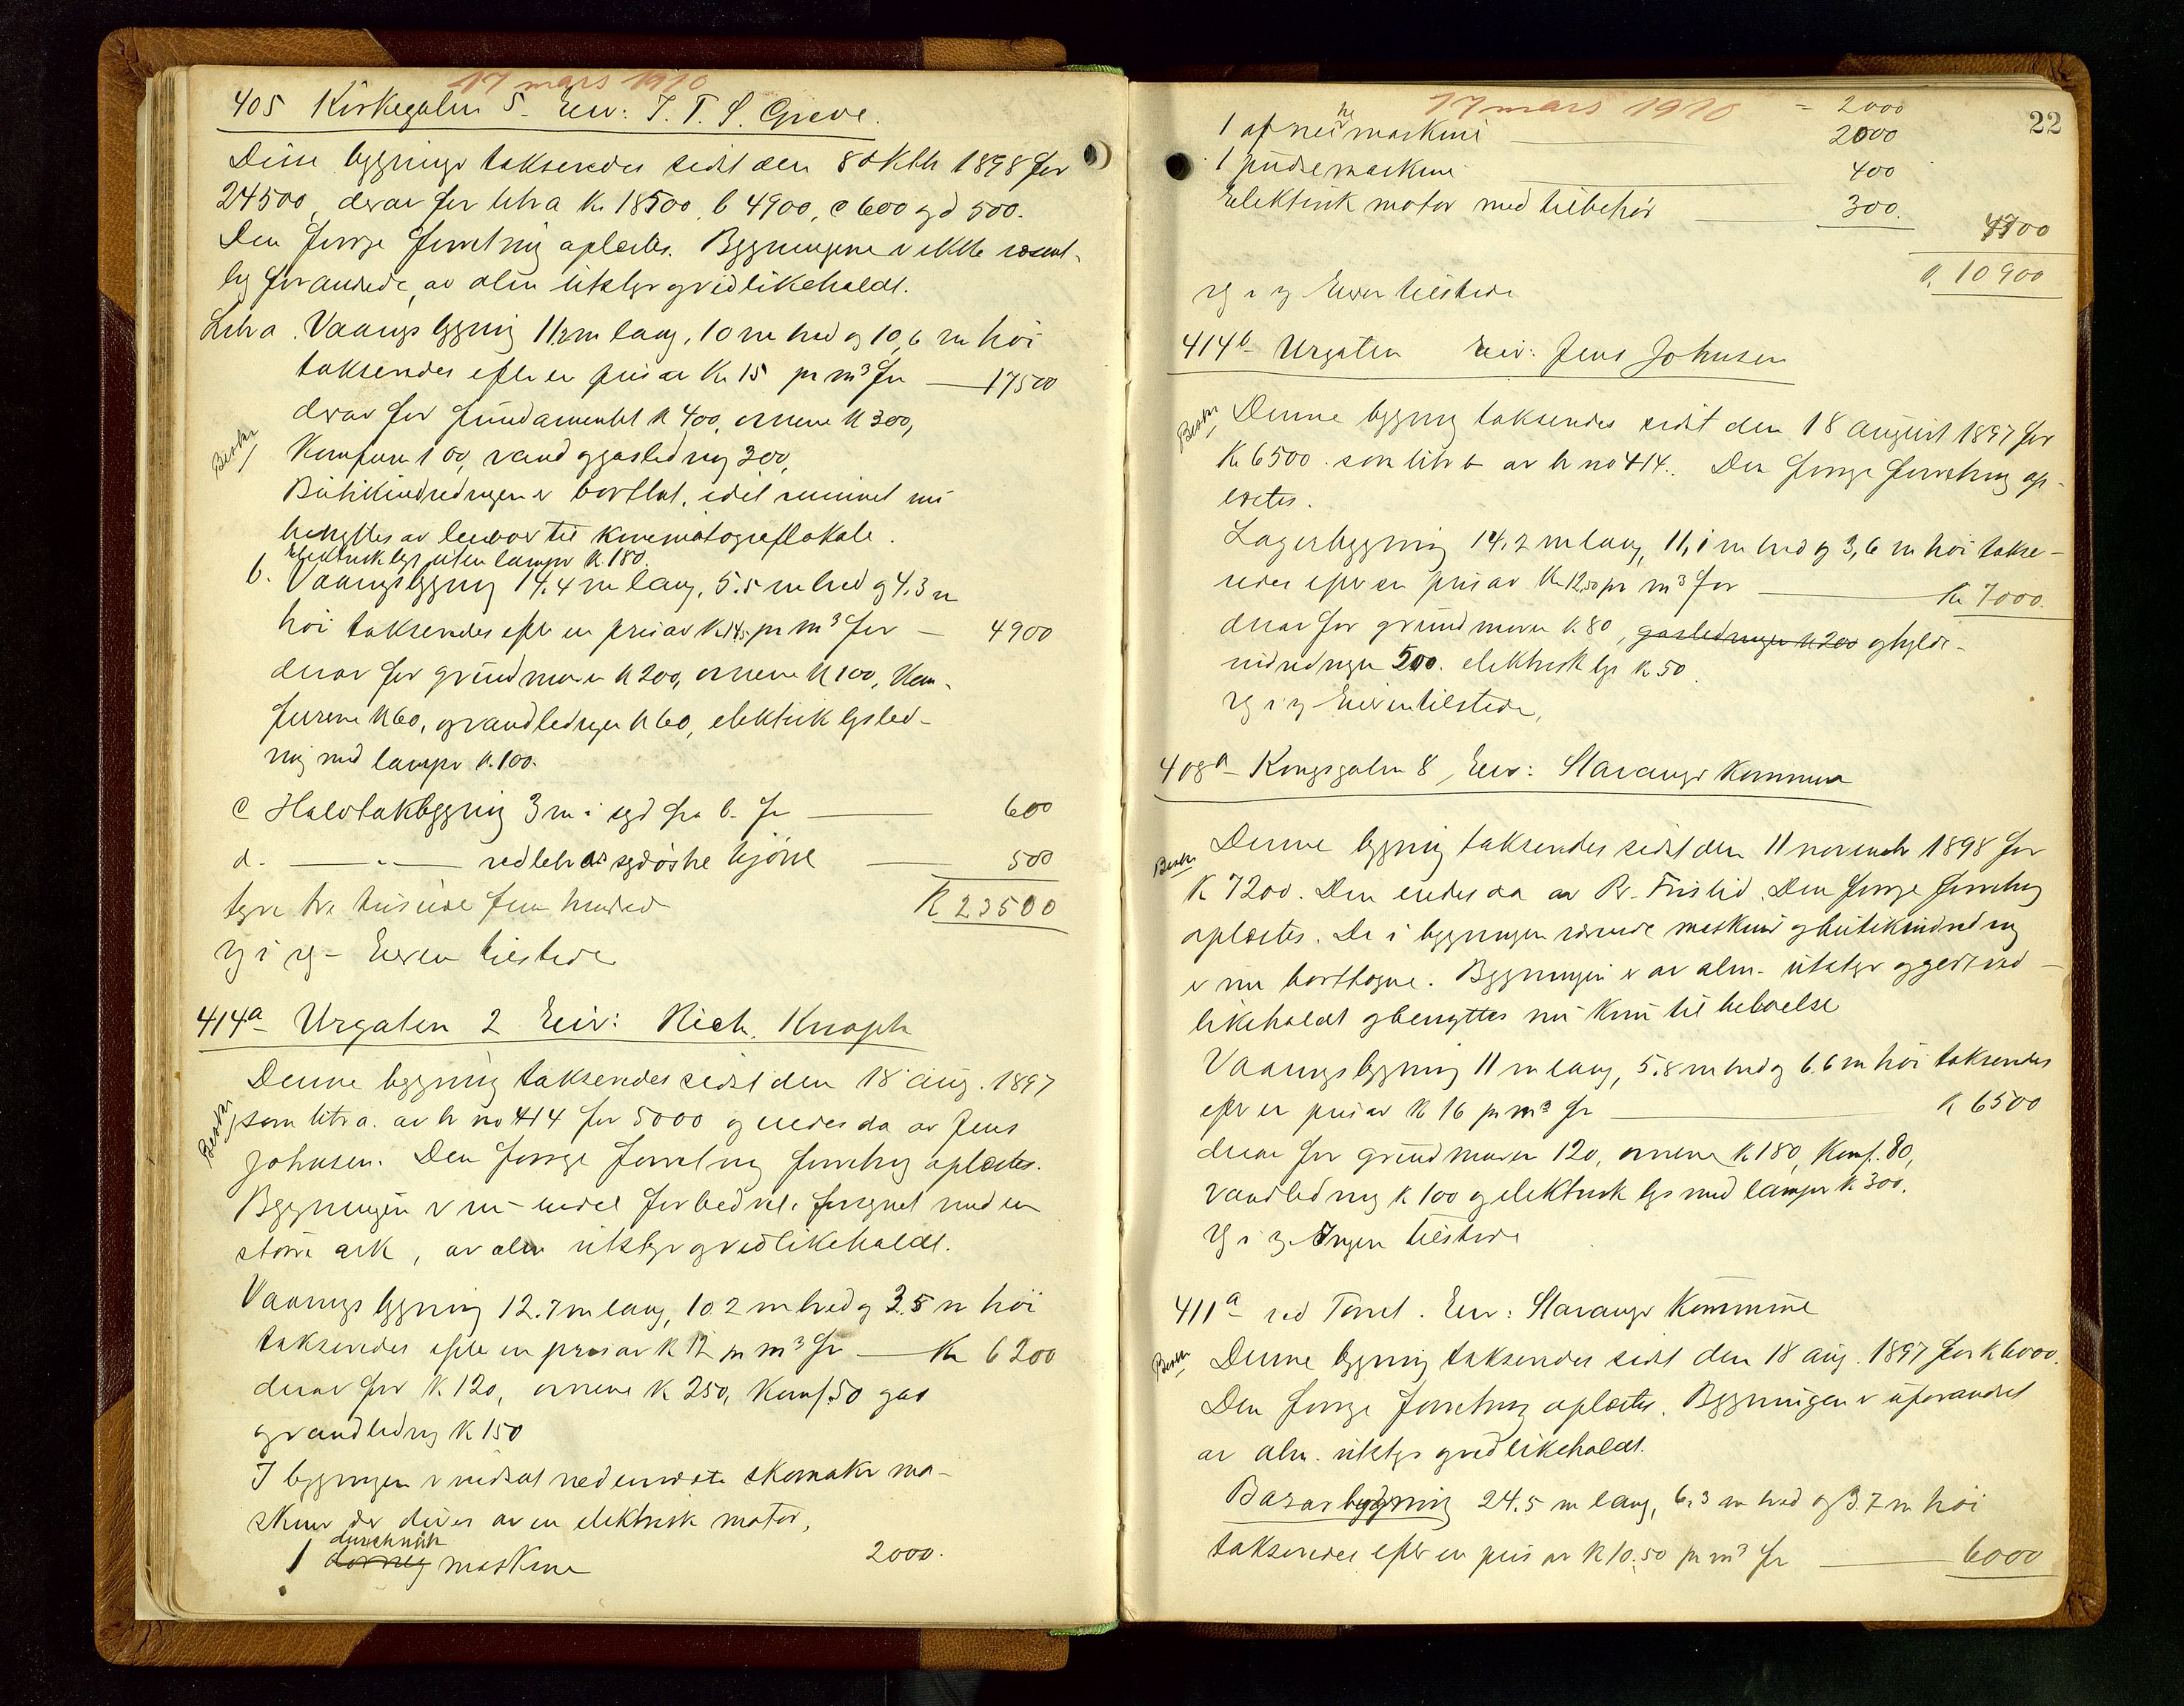 17 mars 1910
405 Kirkegaten 5. Eier: T. T. S. Greve.
Disse bygninger taksertes sidst den 8 oktb 1898 for
24500, derav for litra Kr 18500, b 4900, c 600 og d 500.
Den forrige forretning oplæstes. Bygningene er ikke væsent-
lig forandrede, av alm utstyr og vedlikeholdt.
Litra. Vaaningsbygning 11,2 m lang, 10 m bred og 10,6 m høi
taksertes efter en pris av Kr 15 pr m³ for — 17500
derav for fundamentet k 400, ovnene k 300,
Beskr
Komfurer 100, vand og gasledning 300,
Butikindredningen er borttat, idet rummet nu
benyttes av leieboer til kinematograflokale.
Elektrisk lys uten lamper k. 180.
b. Vaaningsbygning 14,4 m lang, 5.5 m bred og 4,3 m
høi taksertes efter en pris av k 14,5 pr m³ for — 4900
derav for grundmuren k 200, ovnene k 100, Kom-
furene k 60, og vandledningen k 60, elektrisk lysled-
ning med lamper k. 100.
c Halvtakbygning 3 m i syd fra b. for — 600
d. — " — ved litr a's sydøstre hjørne — 500
tyve tre tusinde fem hundred K 23500
Eieren tilstede
414a Urgaten 2 Eier: Rich. Knoph
Denne bygning taksertes sidst den 18 aug. 1897
Beskr
som litr a. av br no 414 for 5000 og eiedes da av Jens
Johnsen. Den forrige forretning forretning oplæstes.
Bygningen er nu endel forbedret, forøget med en
større ark, av alm utstyr og vedlikeholdt.
Vaaningsbygning 12.7 m lang, 10 2 m bred og 3.5 m høi
taksertes efter en pris av k 12 pr m³ for — Kr 6200
derav for k 120, ovnene k 250, Komf. 50 gas
og vandledning k 150
I bygningen er indsat nedennævnte skomaker ma-
skiner der drives av en elektrisk motor,
durchnäh
1 maskine 2000.
17 mars 1910
22
= 2000
1 maskine — 2000
1 pudsemaskine — 400
Elektrisk motor med tilbehør — 300.
4700
k. 10900
Eieren tilstede
414b Urgaten Eier: Jens Johnsen
Beskr
Denne bygning taksertes sidst den 18 august 1897 for
Kr 6500. som litr b av br no 414. Den forrige forretning op-
læstes.
Lagerbygning 14,2 m lang, 11,1 m bred og 3,6 m høi takse-
redes efter en pris av Kr 12,50 pr m³ for — Kr 7000.
derav for grundmuren k. 80, gasledningen k 200 og hylde-
indredningen 500. elektrisk lys k 50.
Eieren tilstede,
408a Kongsgaten 8, Eier: Stavanger Kommune
Beskr
Denne bygning taksertes sidst den 11 novembr 1898 for
K 7200. Den eiedes da av Fristid. Den forrige forretning
oplæstes. De i bygningen værende maskiner og butikindredning
er nu borttagne. Bygningen er av alm. utstyr og godt ved-
likeholdt og benyttes nu kun til beboelse
Vaaningsbygning 11 m lang, 5.8 m bred og 6.6 m høi taksertes
efter en pris av k 16 pr m³ for — k 6500
derav for grundmuren 120, ovnene k 180, Komf. 80,
vandledning k 100 og elektrisk lys med lamper k 300.
Ingen tilstede
411a ved Torvet. Eier: Stavanger Kommune
Beskr
Denne bygning taksertes sidst den 18 aug. 1897 for k 6000.
Den forrige forretning oplæstes. Bygningen er uforandret
av alm. utstyr og vedlikeholdt.
Basarbygning 24.5 m lang, 6,3 m bred og 3.7 m høi
taksertes efter en pris av k 10.50 pr m³ for — 6000